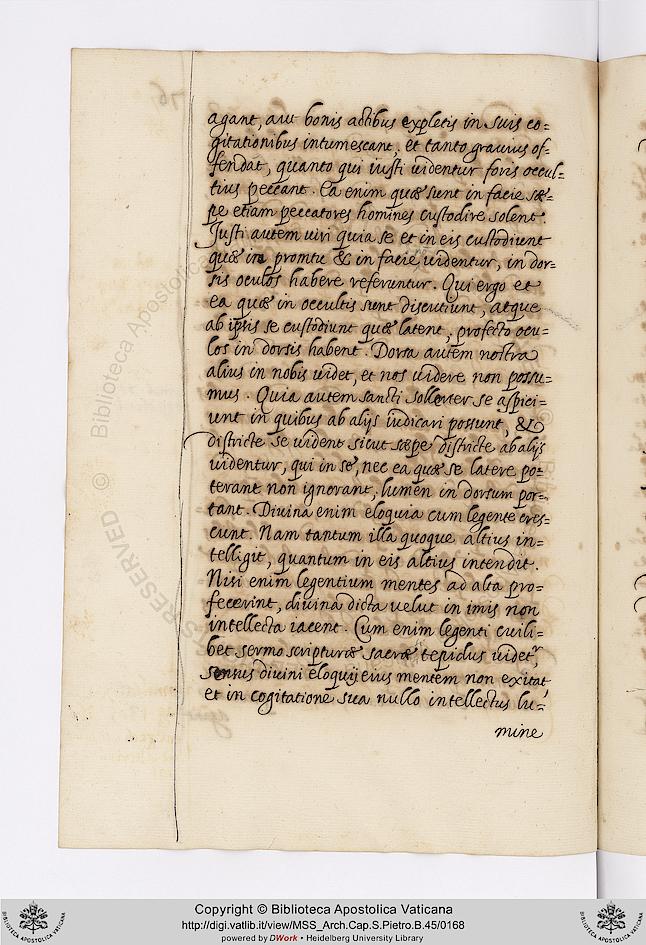 agant, aut bonis actibus expletis in suis co=
gitationibus intumescant, et tanto gravius of=
fendat, quanto qui iusti uidentur foris occul=
tius peccant. Ea enim quæ sunt in facie sæ=
pe etiam peccatores homines custodire solent.
Justi autem uiri quia se et in eis custodiunt
quæ in promtu & in facie uidentur, in dor=
sis oculos habere referuntur. Qui ergo et
ea quæ in occultis sunt discutiunt, atque
ab ipsis se custodiunt quæ latent, profecto ocu=
los in dorsis habent. Dorsa autem nostra
alius in nobis uidet, et nos uidere non possu=
mus. Quia autem sancti sollerter se aspici=
unt in quibus ab alijs iudicari possunt, &
districte se uident sicut sæpe districte ab alijs
uidentur, qui in se, nec ea quæ se latere po=
terant non ignorant, lumen in dorsum por=
tant. Divina enim eloquia cum legente cres=
cunt. Nam tantum illa quoque altius in=
telligit, quantum in eis altius intendit.
Nisi enim legentium mentes ad alta pro=
fecerint, divina dicta uelut in imis non
intellecta iacent. Cum enim legenti cuili=
bet sermo scripturæ sacræ tepidus uidetr,
sensus divini eloquij eius mentem non exitat
et in cogitatione sua nullo intellectus lu=
mine
Copyright © Biblioteca Apostolica Vaticana
http://digi.vatlib.it/view/MSS_Arch.Cap.S.Pietro.B.45/0168
powered by DWork • Heidelberg University Library